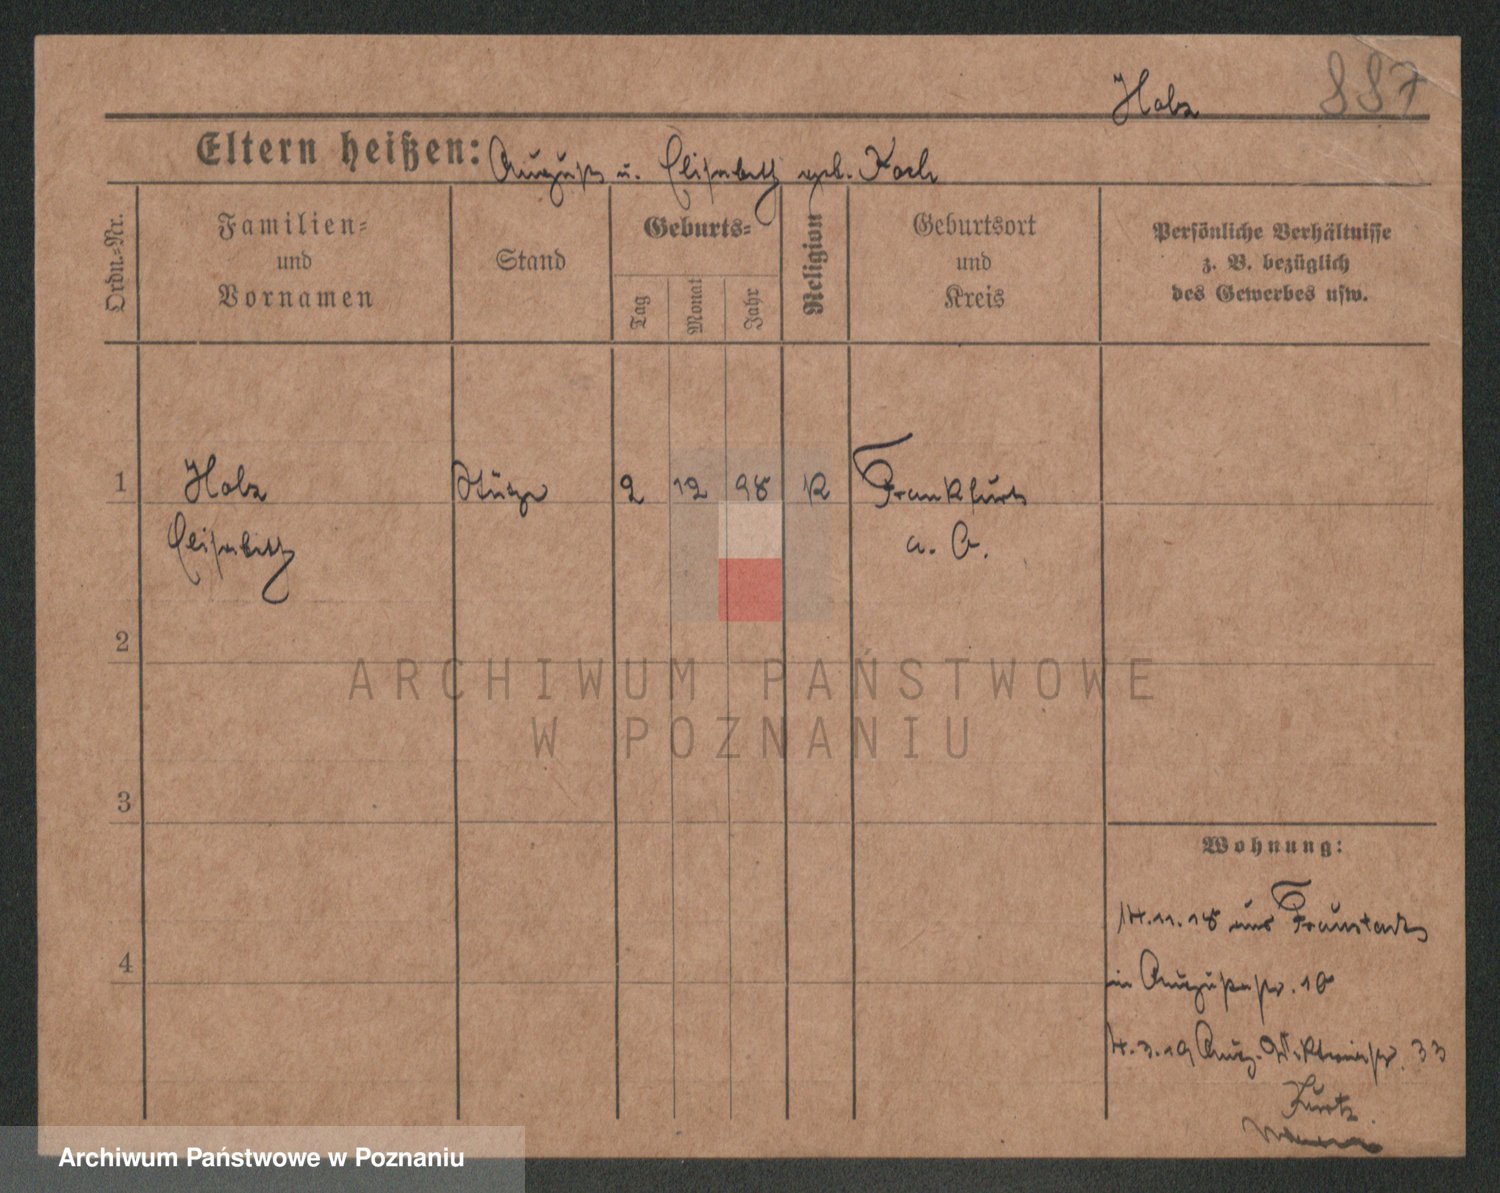 Holz 887
Eltern heißen: August u. Elisabeth geb. Koch
Ordn.-Nr.
Familien-
und
Vornamen
Stand
Geburts-
Tag
Monat
Jahr
Religion
Geburtsort
und
Kreis
Persönliche Verhältnisse
z. B. bezüglich
des Gewerbes usw.
1 Holz Stütze 2 12 98 K Frankfurt
Elisabeth a. O.
2
ARCHIWUM PAŃSTWOWE
W POZNANIU
3
Wohnung:
14.11.18 aus Fraustadt
4
in Augustastr. 18
4.3.19 Aug. Viktoriastr. 33
Kurtz
Archiwum Państwowe w Poznaniu